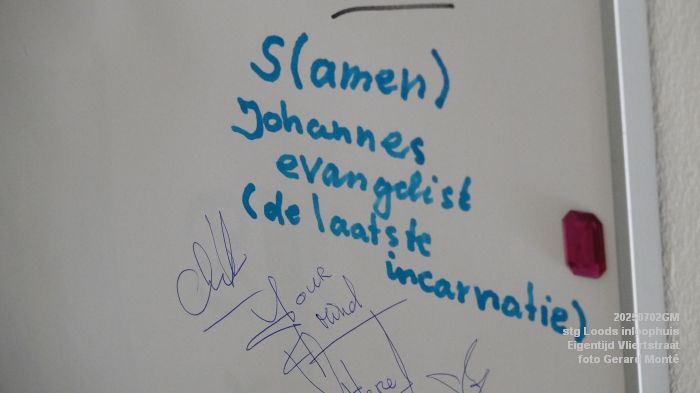 S(amen)
Johannes
evangelist
(de laatste
incarnatie)
Your
mind
20250702GM
stg Loods inloophuis
Eigentijd Vliertstraat
foto Gerard Monté